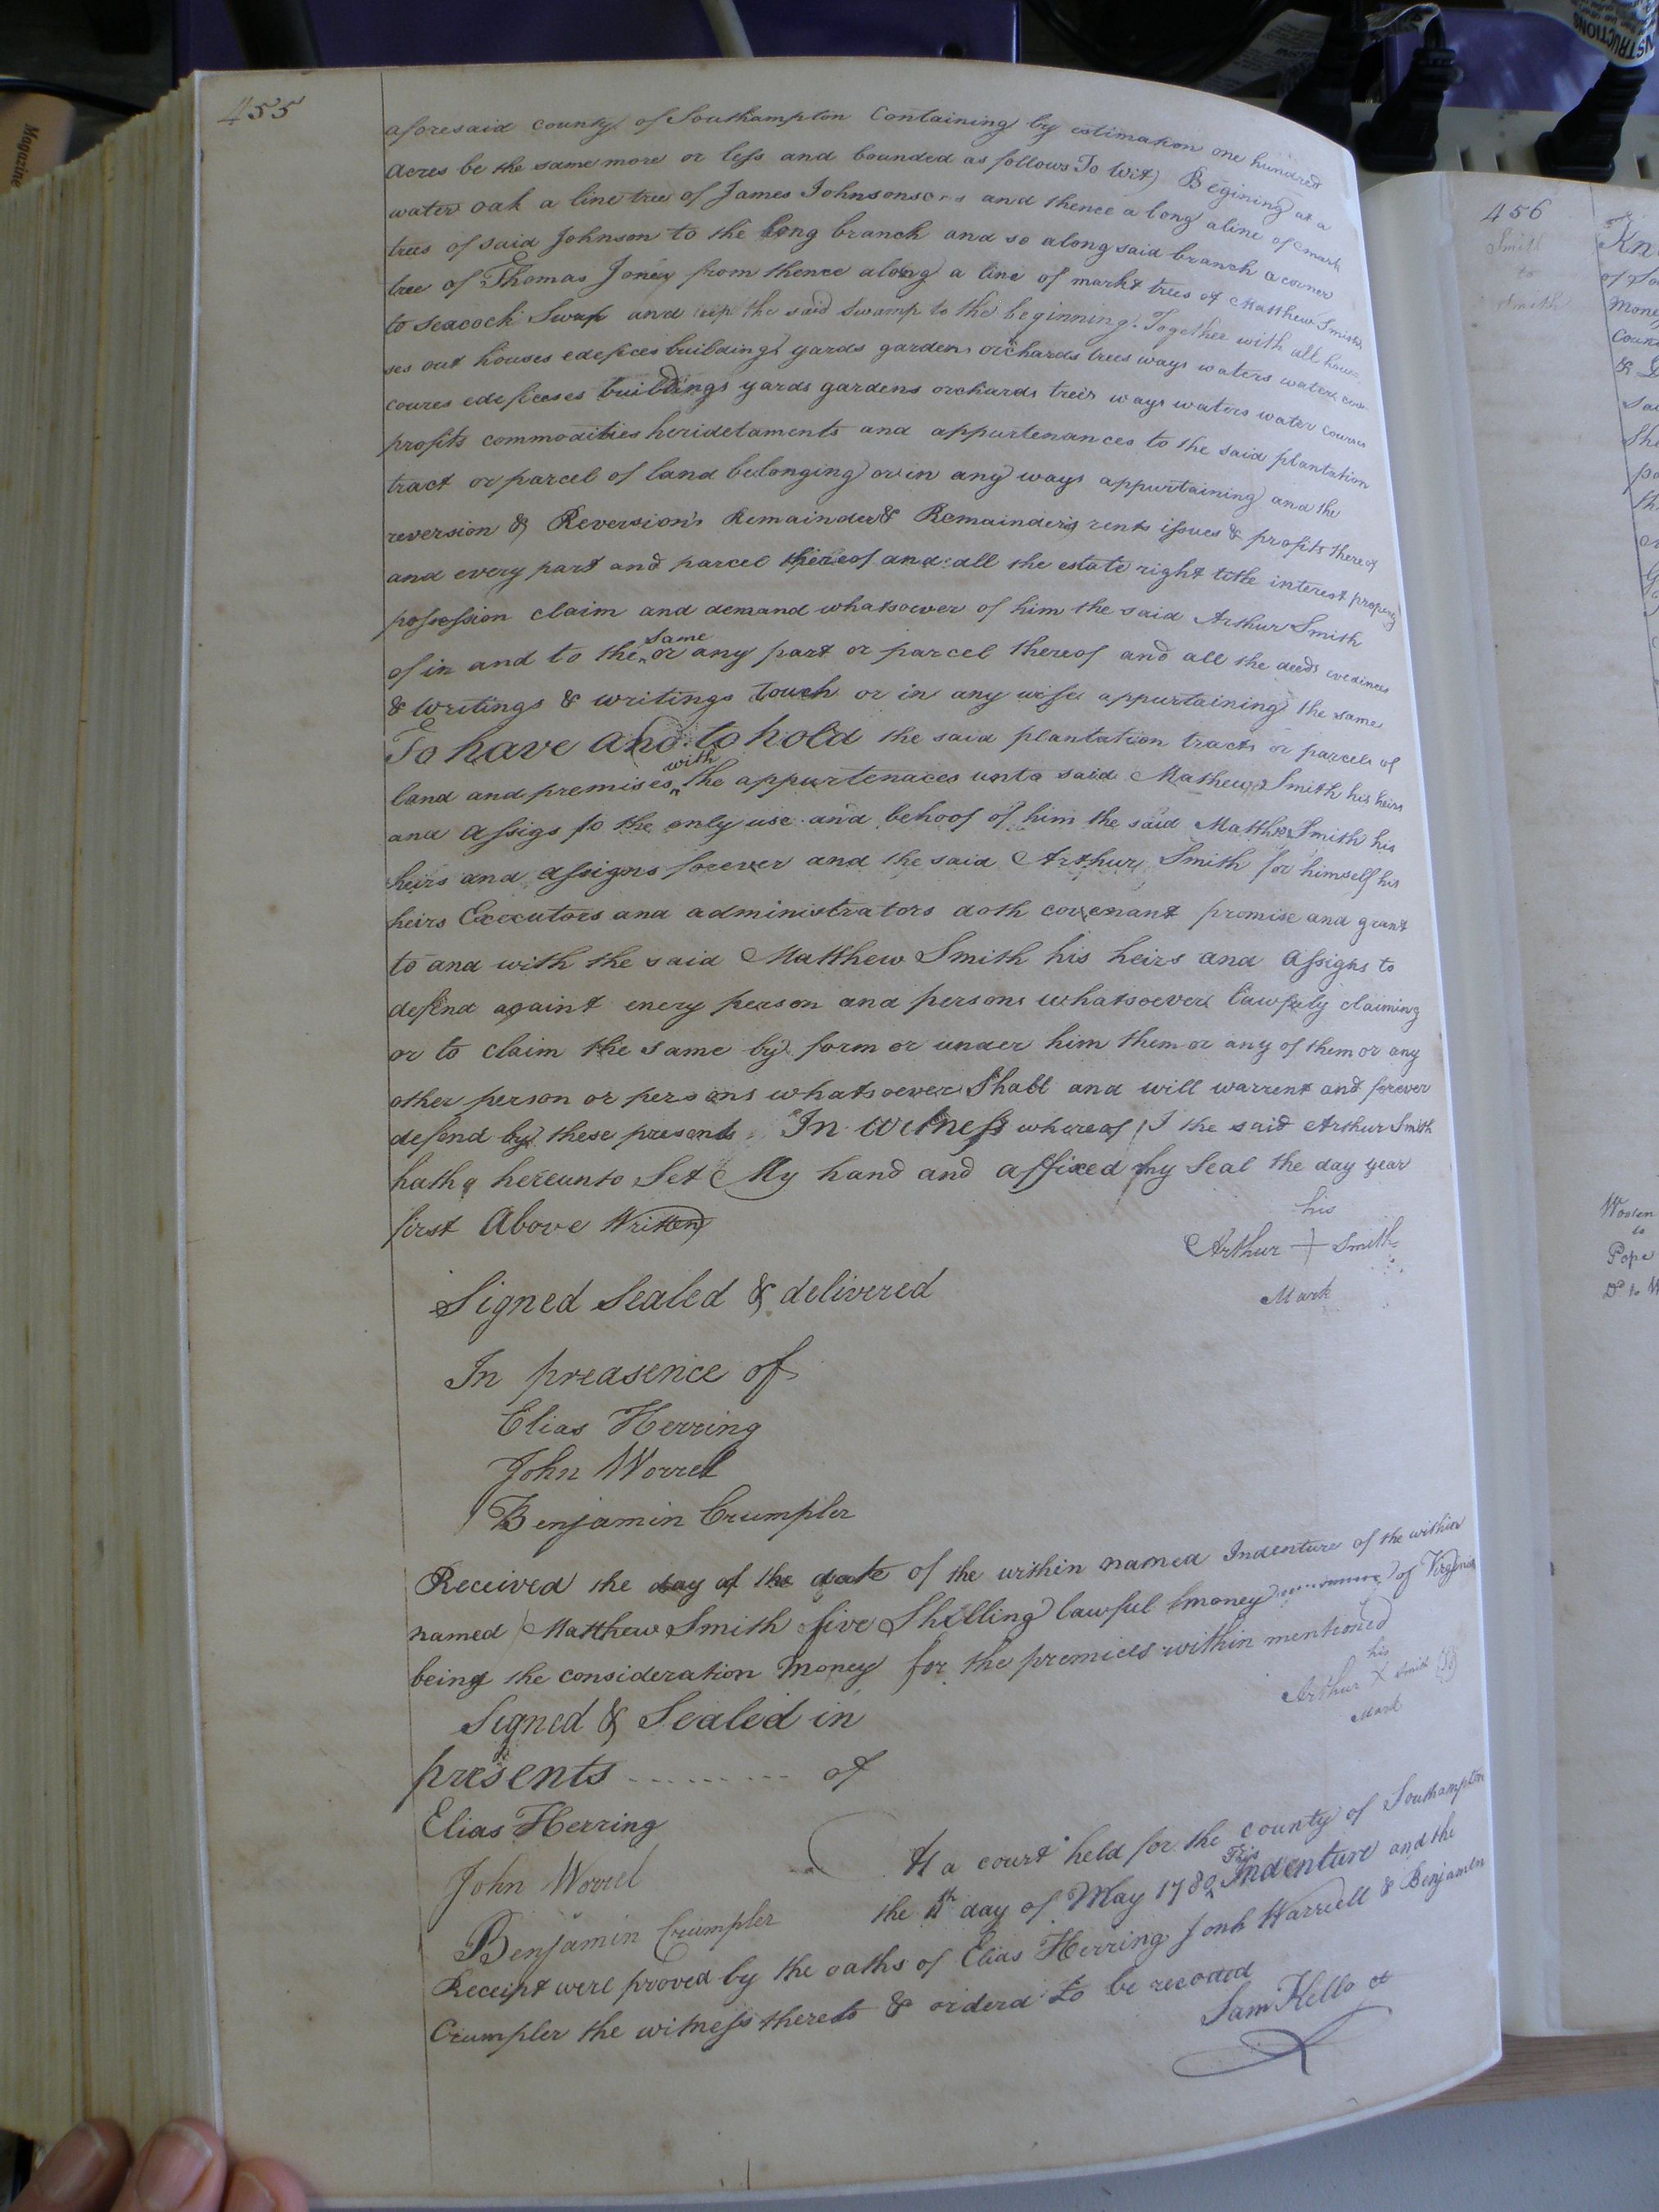 455
aforesaid county of Southampton Containing by estimation one hundred
Acres be the same more or less and bounded as follows To Wit) Begining at a
water oak a line tree of James Johnsons and thence a long a line of mark
trees of said Johnson to the long branch and so along said branch a corner
tree of Thomas Joney from thence along a line of markt trees of Matthew Smiths
to Seacock Swap and up the said Swamp to the beginning. Together with all hou=
ses out houses edefices buildings yards gardens orchards trees ways waters water cou
coures edeficeses buildings yards gardens orchards trees ways waters water courses
profits commodities heridetaments and appurtenances to the said plantation
tract or parcel of land belonging or in any ways appurtaining and the
reversion & Reversion's Remainder & Remainders rents issues & profits thereof
and every part and parcel thereof and all the estate right title interest property
possession claim and demand whatsoever of him the said Arthur Smith
of in and to the same or any part or parcel thereof and all the deeds evedinces
& writings & writings touch or in any wise appurtaining the same
To have and to hold the said plantation tracts or parcels of
land and premises with the appurtenaces unto said Mathew Smith his heirs
and assigs to the only use and behoof of him the said Matthew Smith his
heirs and assigns forever and the said Arthur Smith for himself his
heirs Executors and administrators doth covenant promise and grant
to and with the said Matthew Smith his heirs and assigns to
defend againt enery person and persons whatsoever lawfuly claiming
or to claim the same by form or under him them or any of them or any
other person or persons whatsoever Shall and will warrent and forever
defend by these presents. In witness whereof I the said Arthur Smith
hath hereunto Set My hand and affixed my Seal the day year
first Above Written
his
Arthur + Smith
Mark
Signed Sealed & delivered
In preasence of
Elias Herring
John Worrel
Benjamin Crumpler
Received the day of the date of the within named Indenture of the within
named Matthew Smith five Shilling lawful money of Virginia
being the consideration money for the premices within mentioned
his
Arthur X Smith
Mark
Signed & Sealed in
presents ......... of
Elias Herring
John Worrel
Benjamin Crumpler
At a court held for the county of Southampton
the day of May 1782 This Indenture and the
Receipt were proved by the oaths of Elias Herring Jonh Warrell & Benjamin
Crumpler the witness thereto & orderd to be recoded
Sam Kello ct
456
Smith
to
Smith
Kn
Worlen
to
Pope
Magazine